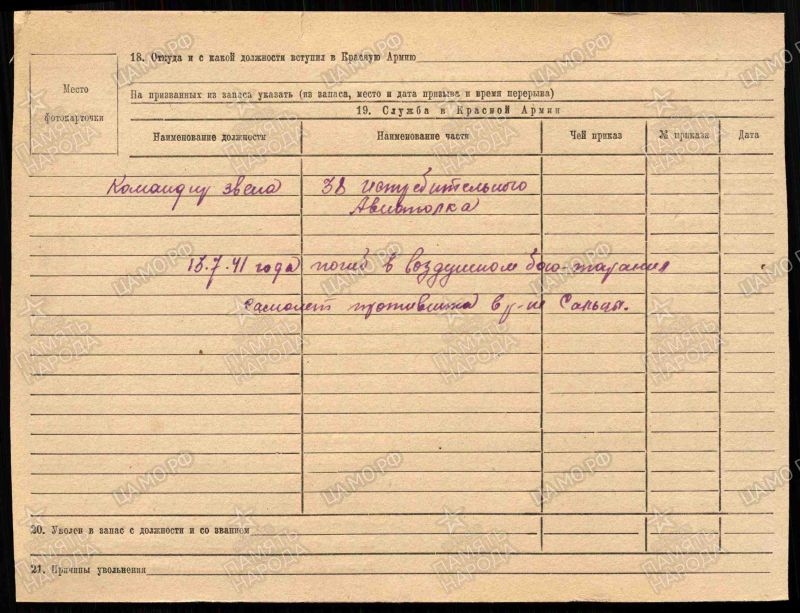 18. Откуда и с какой должности вступил в Красную Армию
Место фотокарточки
На призванных из запаса указать (из запаса, место и дата призыва и время перерыва)
19. Служба в Красной Армии
Наименование должности Наименование части Чей приказ № приказа Дата
Командир звена 38 истребительного
Авиаполка
15.7.41 года погиб в воздушном бою тараня
самолет противника в р-не Сольцы.
20. Уволен в запас с должности и со званием
21. Причины увольнения
ЦАМО.РФ
ПАМЯТЬ НАРОДА